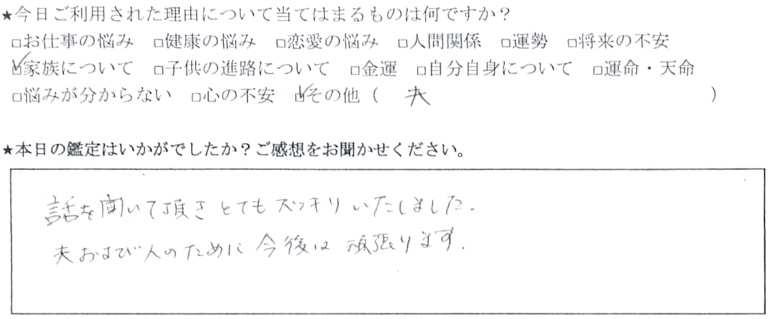 ★今日ご利用された理由について当てはまるものは何ですか？
□お仕事の悩み □健康の悩み □恋愛の悩み □人間関係 □運勢 □将来の不安
☑家族について □子供の進路について □金運 □自分自身について □運命・天命
□悩みが分からない □心の不安 ☑その他（ 夫 ）
★本日の鑑定はいかがでしたか？ご感想をお聞かせください。
話を聞いて頂きとてもスッキリいたしました.
夫および人のために今後は頑張ります.